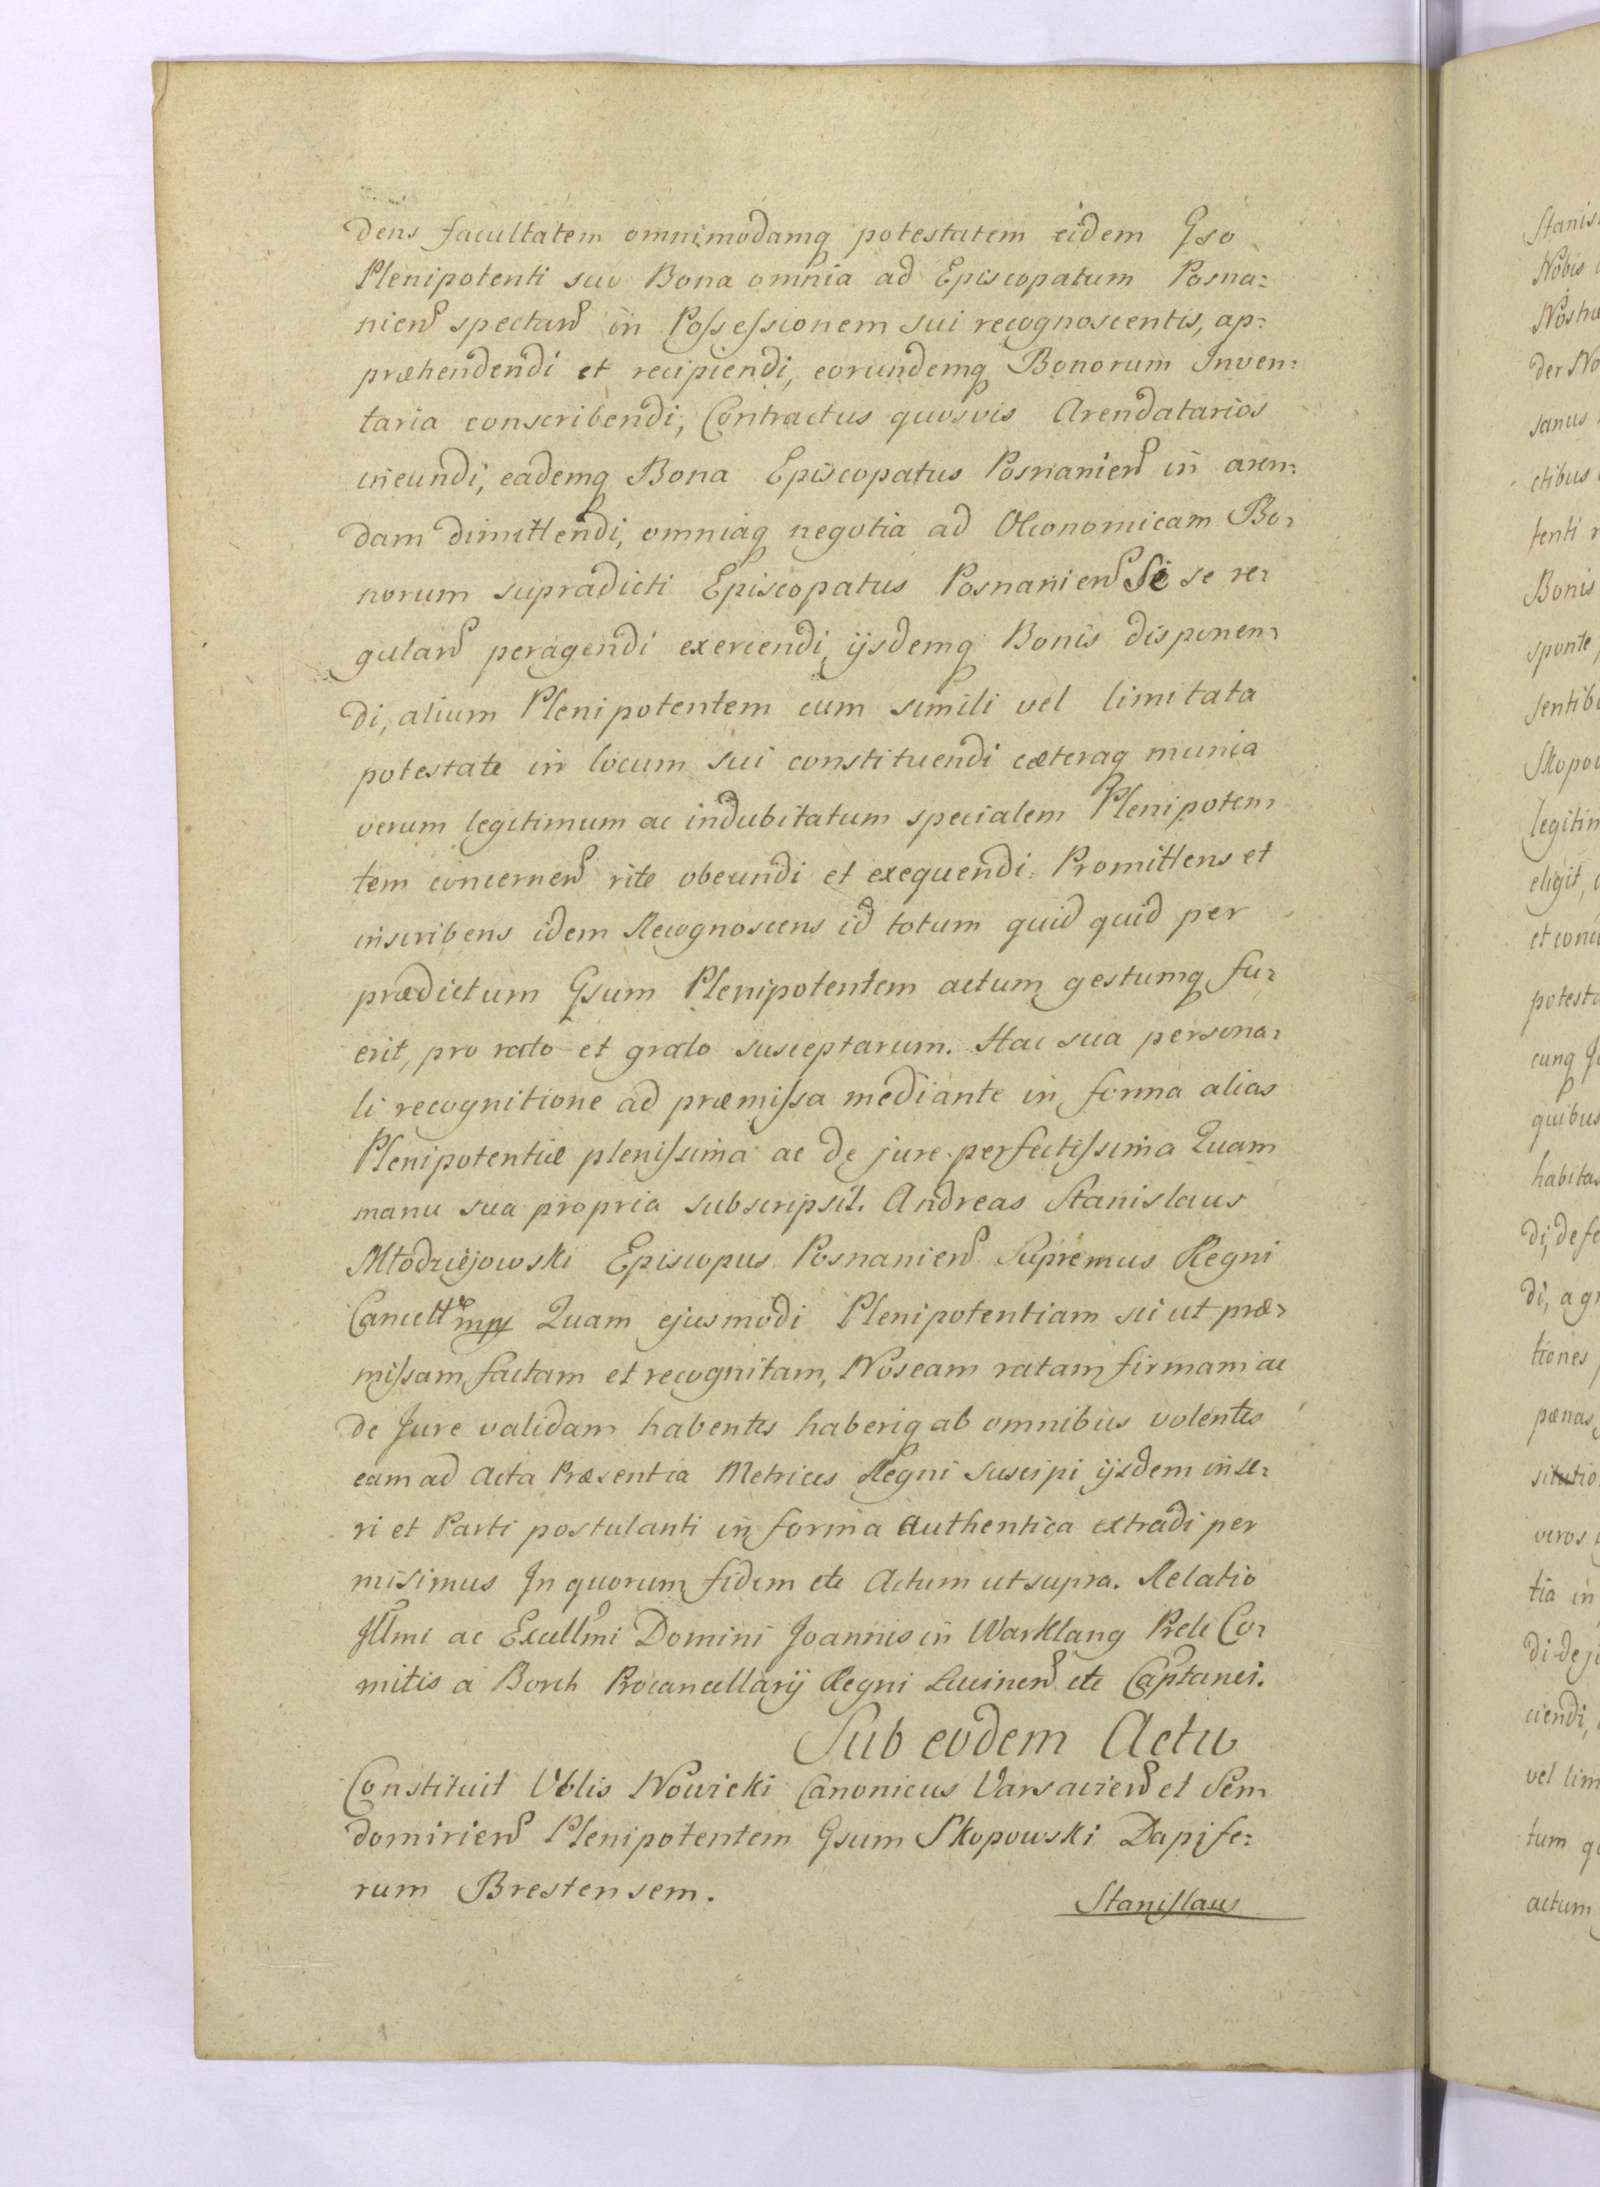 dens facultatem omnimodamq potestatem eidem Gso
Plenipotenti suo Bona omnia ad Episcopatum Posna:
nien spectan in Possessionem sui recognoscentis, ap:
præhendendi et recipiendi, eorundemq Bonorum Inven:
taria conscribendi, Contractus quosvis Arendatarios
ineundi, eademq Bona Episcopatus Posnanien in aren:
dam dimittendi, omniaq negotia ad Oeconomicam Bo:
norum supradicti Episcopatus Posnanien Se se re:
gulan peragendi exercendi, ijsdemq Bonis disponen:
di, alium Plenipotentem cum simili vel limitata
potestate in locum sui constituendi cæteraq munia
verum legitimum ac indubitatum specialem Plenipoten:
tem concernen rite obeundi et exequendi. Promittens et
inscribens idem Recognoscens id totum quid quid per
prædictum Gsum Plenipotentem actum gestumq fu:
erit, pro rato et grato suscepturum. Hac sua persona:
li recognitione ad præmissa mediante in forma alias
Plenipotentiæ plenissima ac de jure perfectissima Quam
manu sua propria subscripsit. Andreas Stanislaus
Młodziejowski Episcopus Posnanien Supremus Regni
Cancell mpp Quam ejusmodi Plenipotentiam sic ut præ:
missam factam et recognitam, Nos eam ratam firmam ac
de Jure validam habentes haberiq ab omnibus volentes
eam ad Acta Præsentia Metrices Regni suscipi ijsdem inse:
ri et Parti postulanti in forma Authentica extradi per
misimus In quorum fidem etc Actum ut supra. Relatio
Illmi ac Excellmi Domini Joannis in Warklang Prele Co:
mitis a Borch Procancellarij Regni Lucinen etc Captanei.
Sub eodem Actu
Constituit Vblis Nowicki Canonicus Varsavien et Sen
domirien Plenipotentem Gsum Skopowski Dapife:
rum Brestensem.
Stanislaus
Stanis
Nobis
Nostra
der No
sanus
ctibus
tenti
Bonis
sponte,
sentib
Skopow
legitim
eligit,
et conc
potesta
cunq
quibus
habitas
di, defe
di, agn
tiones
pœnas,
situtio
veros
tia in
di de j
ciendi,
vel lim
tum q
actum